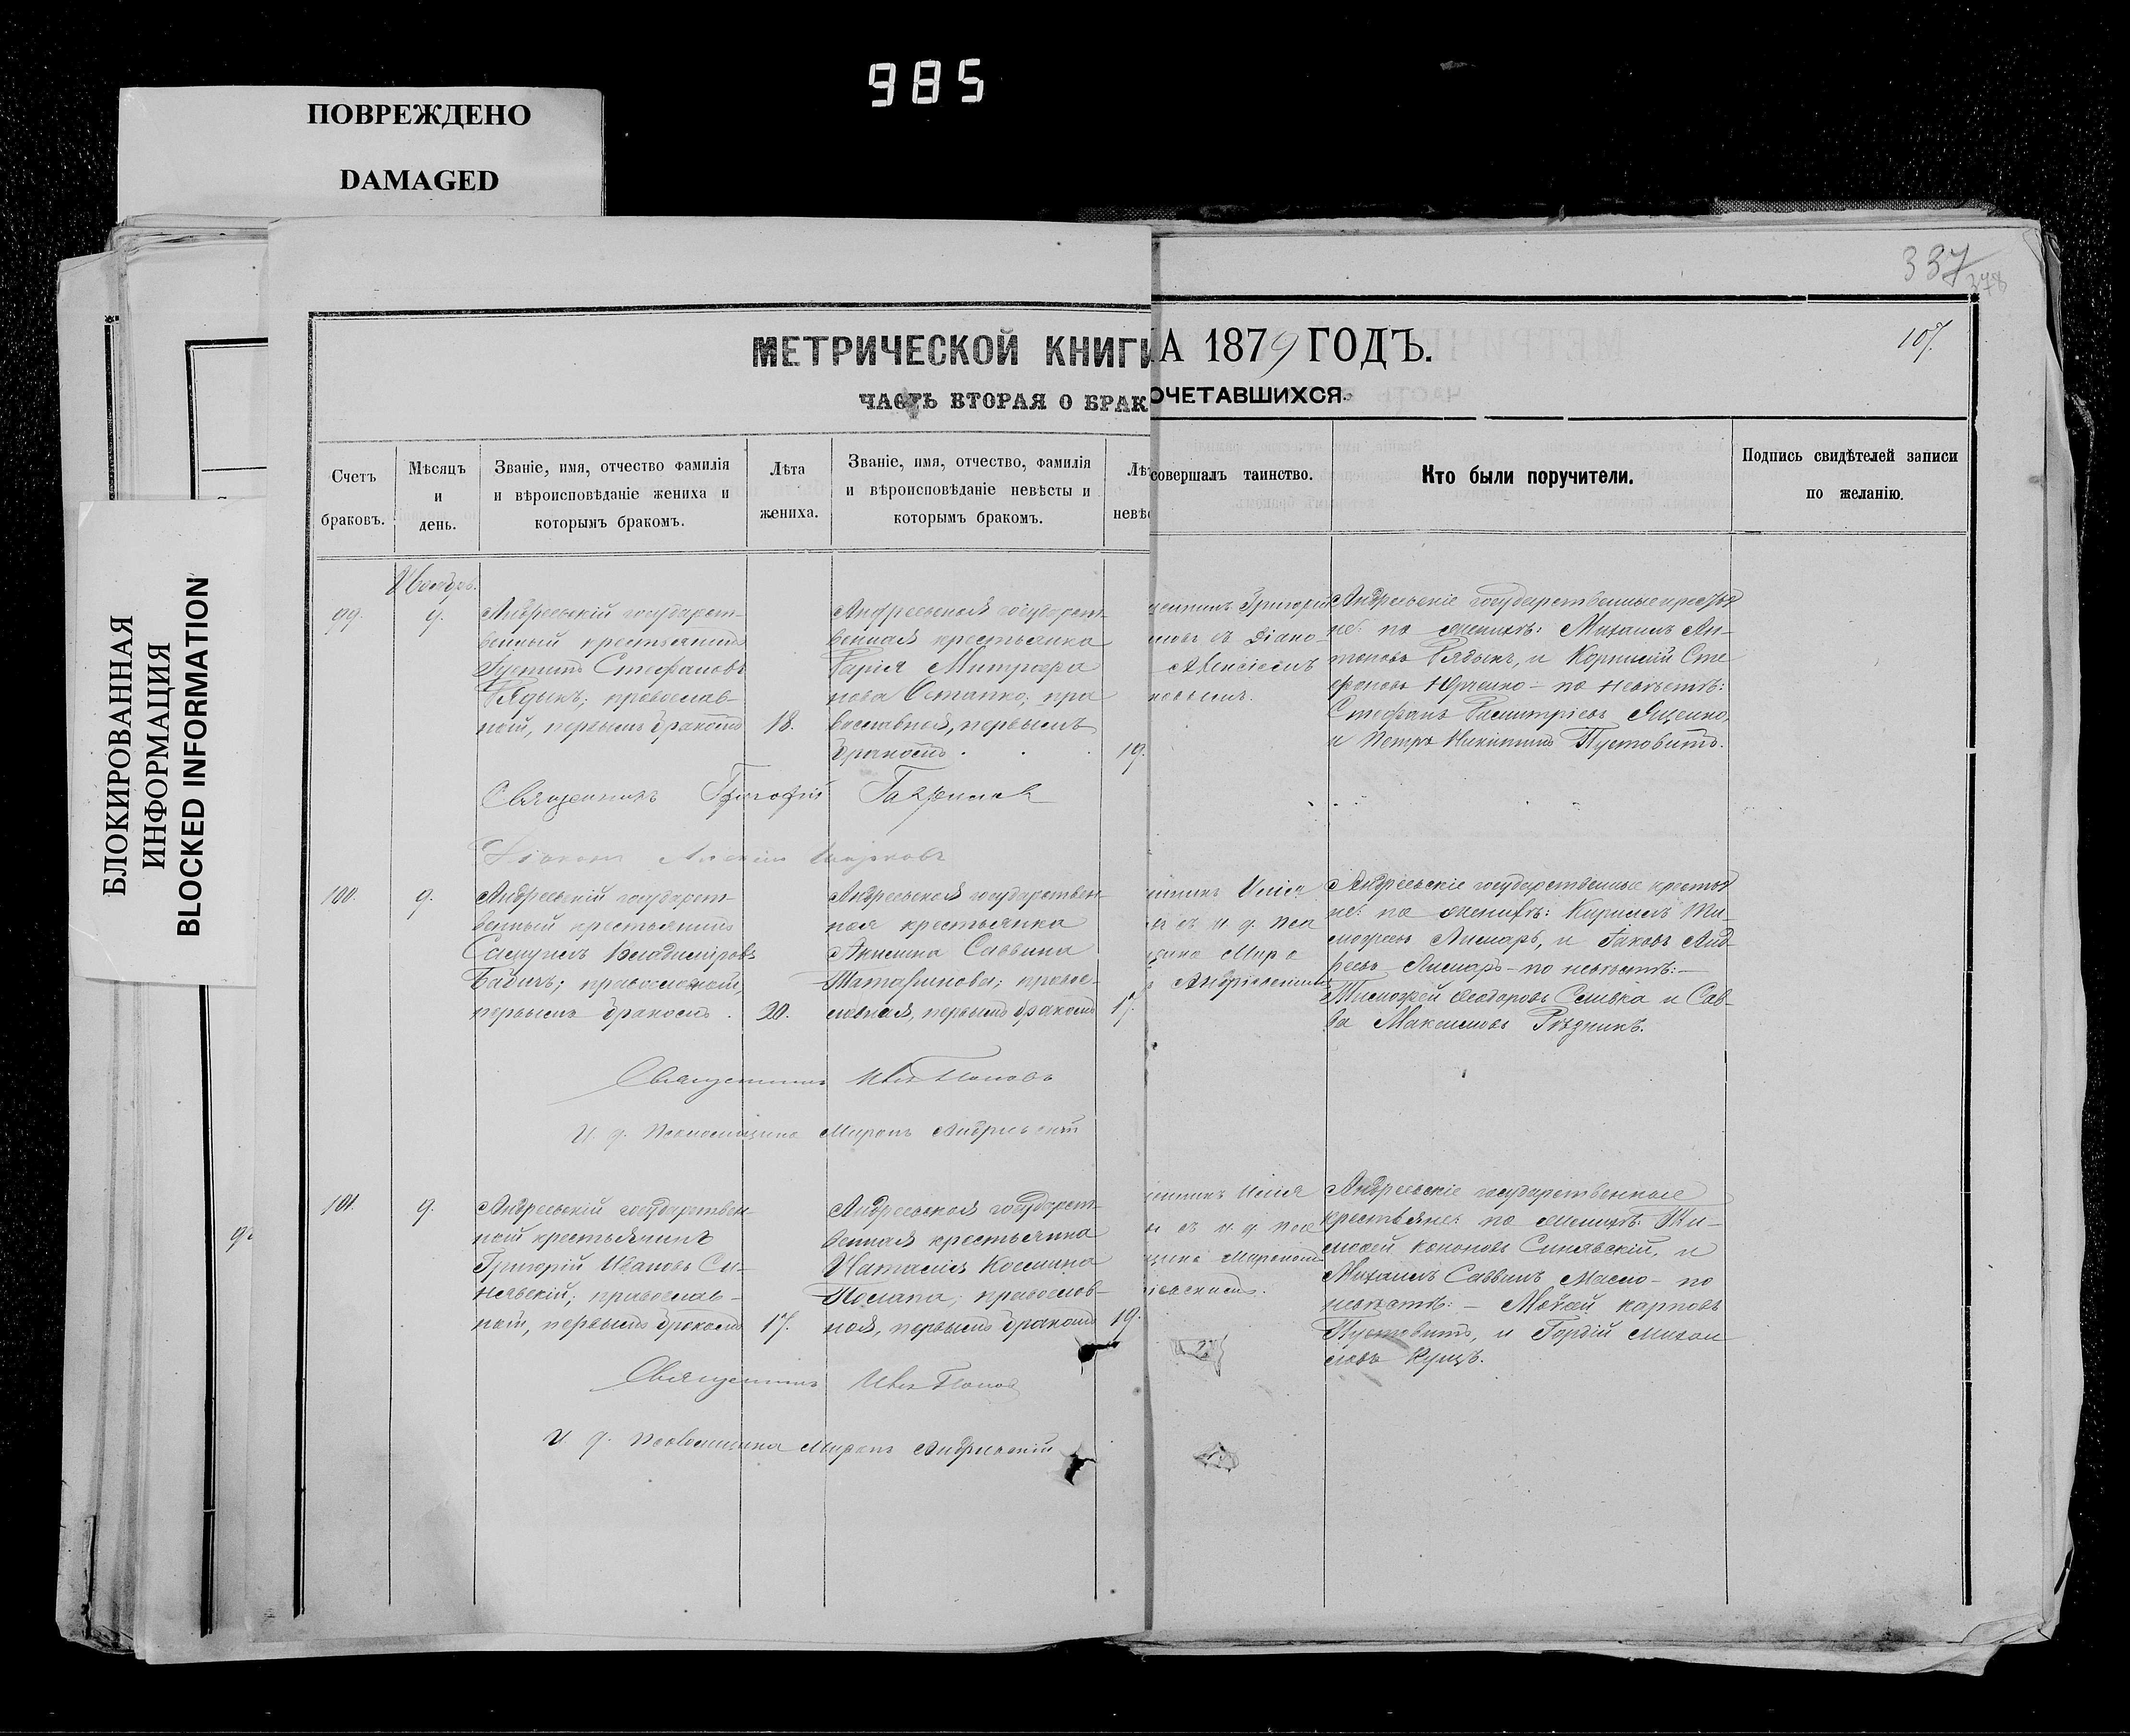 985
ПОВРЕЖДЕНО
DAMAGED
БЛОКИРОВАННАЯ
ИНФОРМАЦИЯ
BLOCKED INFORMATION
337
378
107.
МЕТРИЧЕСКОЙ КНИГИ
А 1879 ГОДЪ.
ЧАСТЬ ВТОРАЯ О БРАК
ОЧЕТАВШИХСЯ.
Счетъ
браковъ.
Мѣсяцъ
и
день.
Званіе, имя, отчество фамилія
и вѣроисповѣданіе жениха и
которымъ бракомъ.
Лѣта
жениха.
Званіе, имя, отчество, фамилія
и вѣроисповѣданіе невѣсты и
которымъ бракомъ.
Лѣ
невѣс
совершалъ таинство.
Кто были поручители.
Подпись свидѣтелей записи
по желанію.
Ноябрь.
99.
9.
Андреевскій государст-
венный крестьянинъ
Стефановъ
православ-
ной, первымъ бракомъ
18.
Андреевская государст-
венная крестьянка
Митрофа
нова Остапко; пра
вославная, первымъ
бракомъ
19.
Григорій
съ Діако
Алексіемъ
Андреевскіе государственные крестья
не: по женихѣ: Михаилъ Ан-
тоновъ Рядыкъ, и Корнилій Сте
фановъ Юрченко - по невѣстѣ:
Стефанъ Димитріевъ Яценко,
и Петръ Никитинъ Пустовитъ.
Священникъ Григорій
Діаконъ Алексій
100.
9.
Андреевскій государст-
венный крестьянинъ
Самуилъ Владиміровъ
Бабичъ; православной,
первымъ бракомъ.
20.
Андреевская государствен
ная крестьянка
Акилина Саввина
Шатаринова; право-
славная, первымъ бракомъ
17.
съ и. д. пса
Миро
Андріевскимъ
Андреевскіе государственные крестья
не: по женихѣ: Кириллъ Ти-
мофеевъ Лимарь, и Іаковъ Анд-
реевъ Лимарь - по невѣстѣ: -
Тимофей Ѳеодоровъ Сливка и Сав-
ва Максимовъ Рѣзникъ.
Священникъ Поповъ
И. д. Псаломщика Миронъ Андріевскій
101.
9.
Андреевскій государствен
ной крестьянинъ
Григорій Ивановъ Си-
нявскій; православ-
ной, первымъ бракомъ
17.
Андреевская государст-
венная крестьянка
Наталія Космина
православ-
ная, первымъ бракомъ
19.
съ и. д. пса
Мирономъ
Андреевскіе государственные
крестьяне: по женихѣ: Ти-
мофей Кононовъ Синявскій, и
Михаилъ Саввинъ Масло - по
невѣстѣ: - Мойсей Карповъ
Пустовитъ, и Гордій Михаи
ловъ Куцъ.
Священникъ Попов
И д. Псаломщика Миронъ Андріевскій